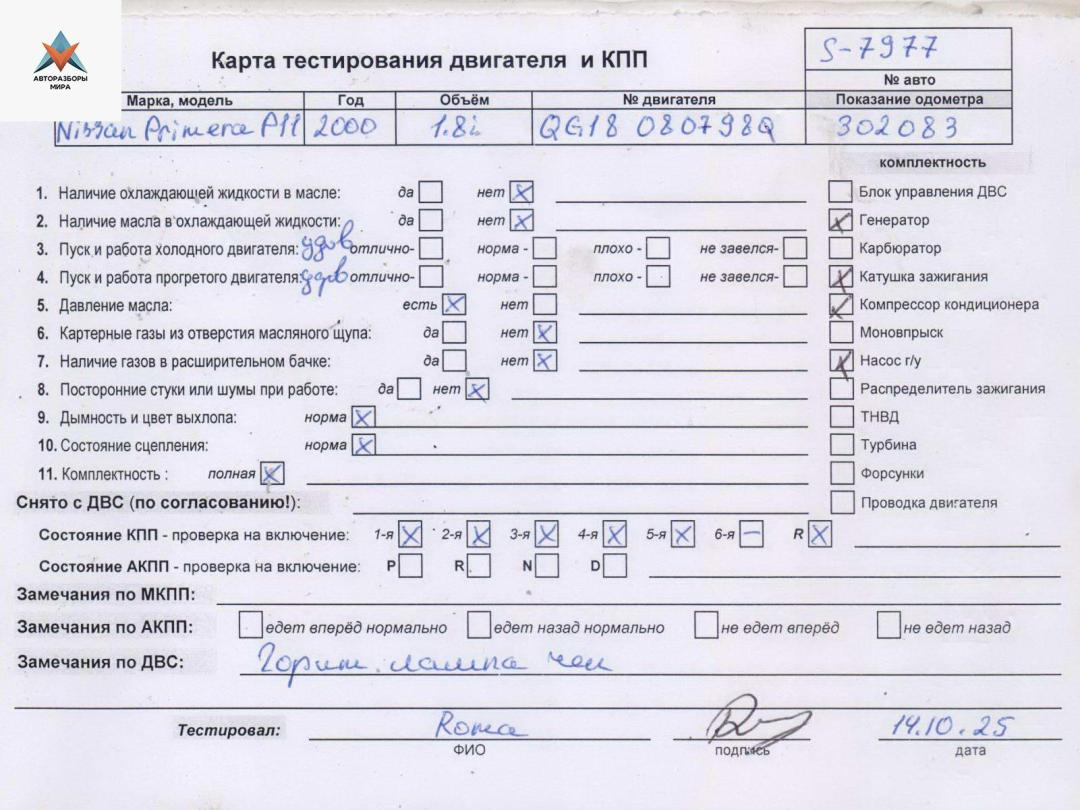 АВТОРАЗБОРЫ
МИРА
Карта тестирования двигателя и КПП
S-7977
№ авто
Марка, модель Год Объём № двигателя Показание одометра
Nissan Primera P11 2000 1.8i QG18 080798Q 302083
комплектность
1. Наличие охлаждающей жидкости в масле: да нет Блок управления ДВС
2. Наличие масла в охлаждающей жидкости: да нет Генератор
3. Пуск и работа холодного двигателя: удов отлично- норма - плохо - не завелся- Карбюратор
4. Пуск и работа прогретого двигателя: удов отлично- норма - плохо - не завелся- Катушка зажигания
5. Давление масла: есть нет Компрессор кондиционера
6. Картерные газы из отверстия масляного щупа: да нет Моновпрыск
7. Наличие газов в расширительном бачке: да нет Насос г/у
8. Посторонние стуки или шумы при работе: да нет Распределитель зажигания
9. Дымность и цвет выхлопа: норма ТНВД
10. Состояние сцепления: норма Турбина
11. Комплектность : полная Форсунки
Снято с ДВС (по согласованию!): Проводка двигателя
Состояние КПП - проверка на включение: 1-я 2-я 3-я 4-я 5-я 6-я R
Состояние АКПП - проверка на включение: P R N D
Замечания по МКПП:
Замечания по АКПП: едет вперёд нормально едет назад нормально не едет вперёд не едет назад
Замечания по ДВС: Горит лампа чек
Тестировал: Roma 14.10.25
ФИО подпись дата